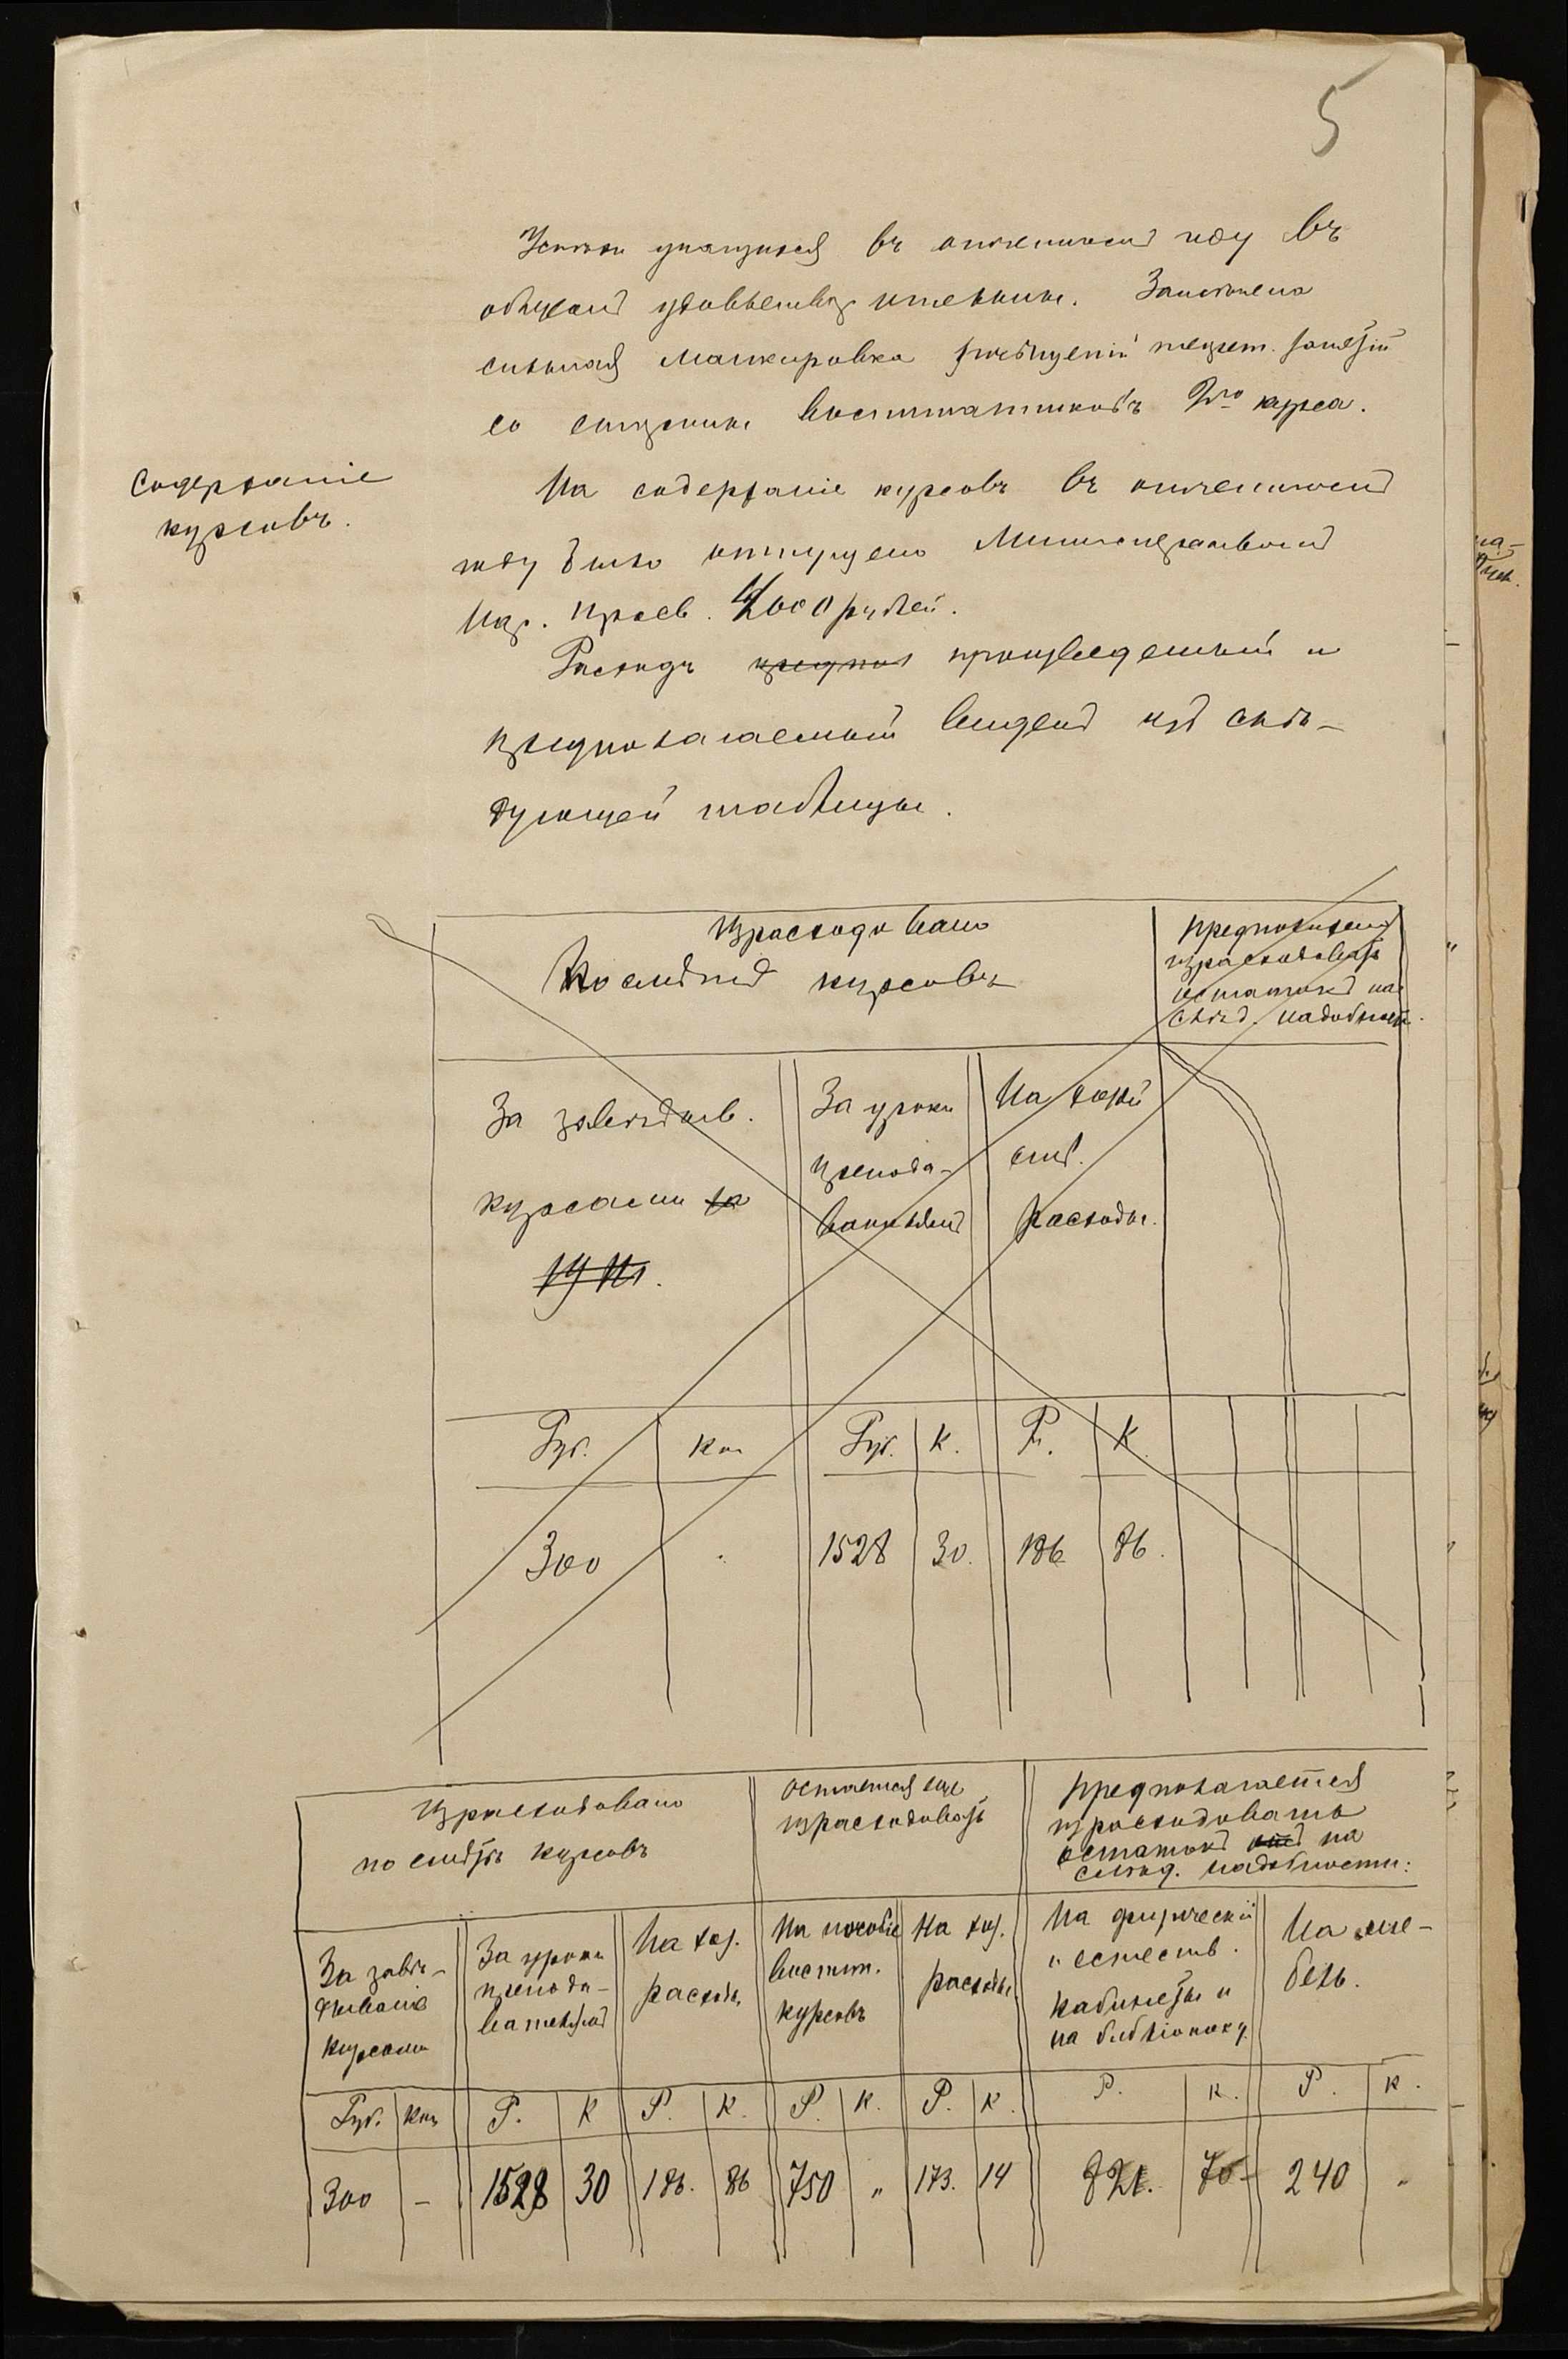 5
Успѣхи учащихся въ отчетномъ году въ
общемъ удовлетворительны. Замѣчена
сильная
со стороны воспитанниковъ 2го курса.
Содержаніе
курсовъ.
На содержаніе курсовъ въ отчетномъ
году было отпущено Министерствомъ
Нар. Просв. 4000 рублей.
Расходъ произведенный и
предполагаемый виденъ изъ слѣ-
дующей таблицы.
Израсходовано
По смѣтѣ курсовъ
Предположено
израсходовать
остатокъ на
слѣд. надобности.
За завѣдыв.
курсами за
1911г.
За уроки
препода-
вателямъ
На хозяй
ств.
расходы.
Руб. Коп Руб. К. Р. К.
300 . 1528 30. 186 86.
Израсходовано
по смѣтѣ курсовъ
Остается еще
израсходовать
Предполагается
израсходовать
остатокъ на
слѣд. надобности:
За завѣ-
дываніе
курсами
За уроки
препода-
вателямъ
На хоз.
расходы
На пособіе
воспит.
курсовъ
На хоз.
расходы
На физическій
и естеств.
кабинеты и
на библіотеку
На ме-
бель.
Руб. Коп Р. К Р. К. Р. К. Р. К. Р. К. Р. К.
300 – 1528 30 186. 86 750 „ 173. 14 821. 70 240 „